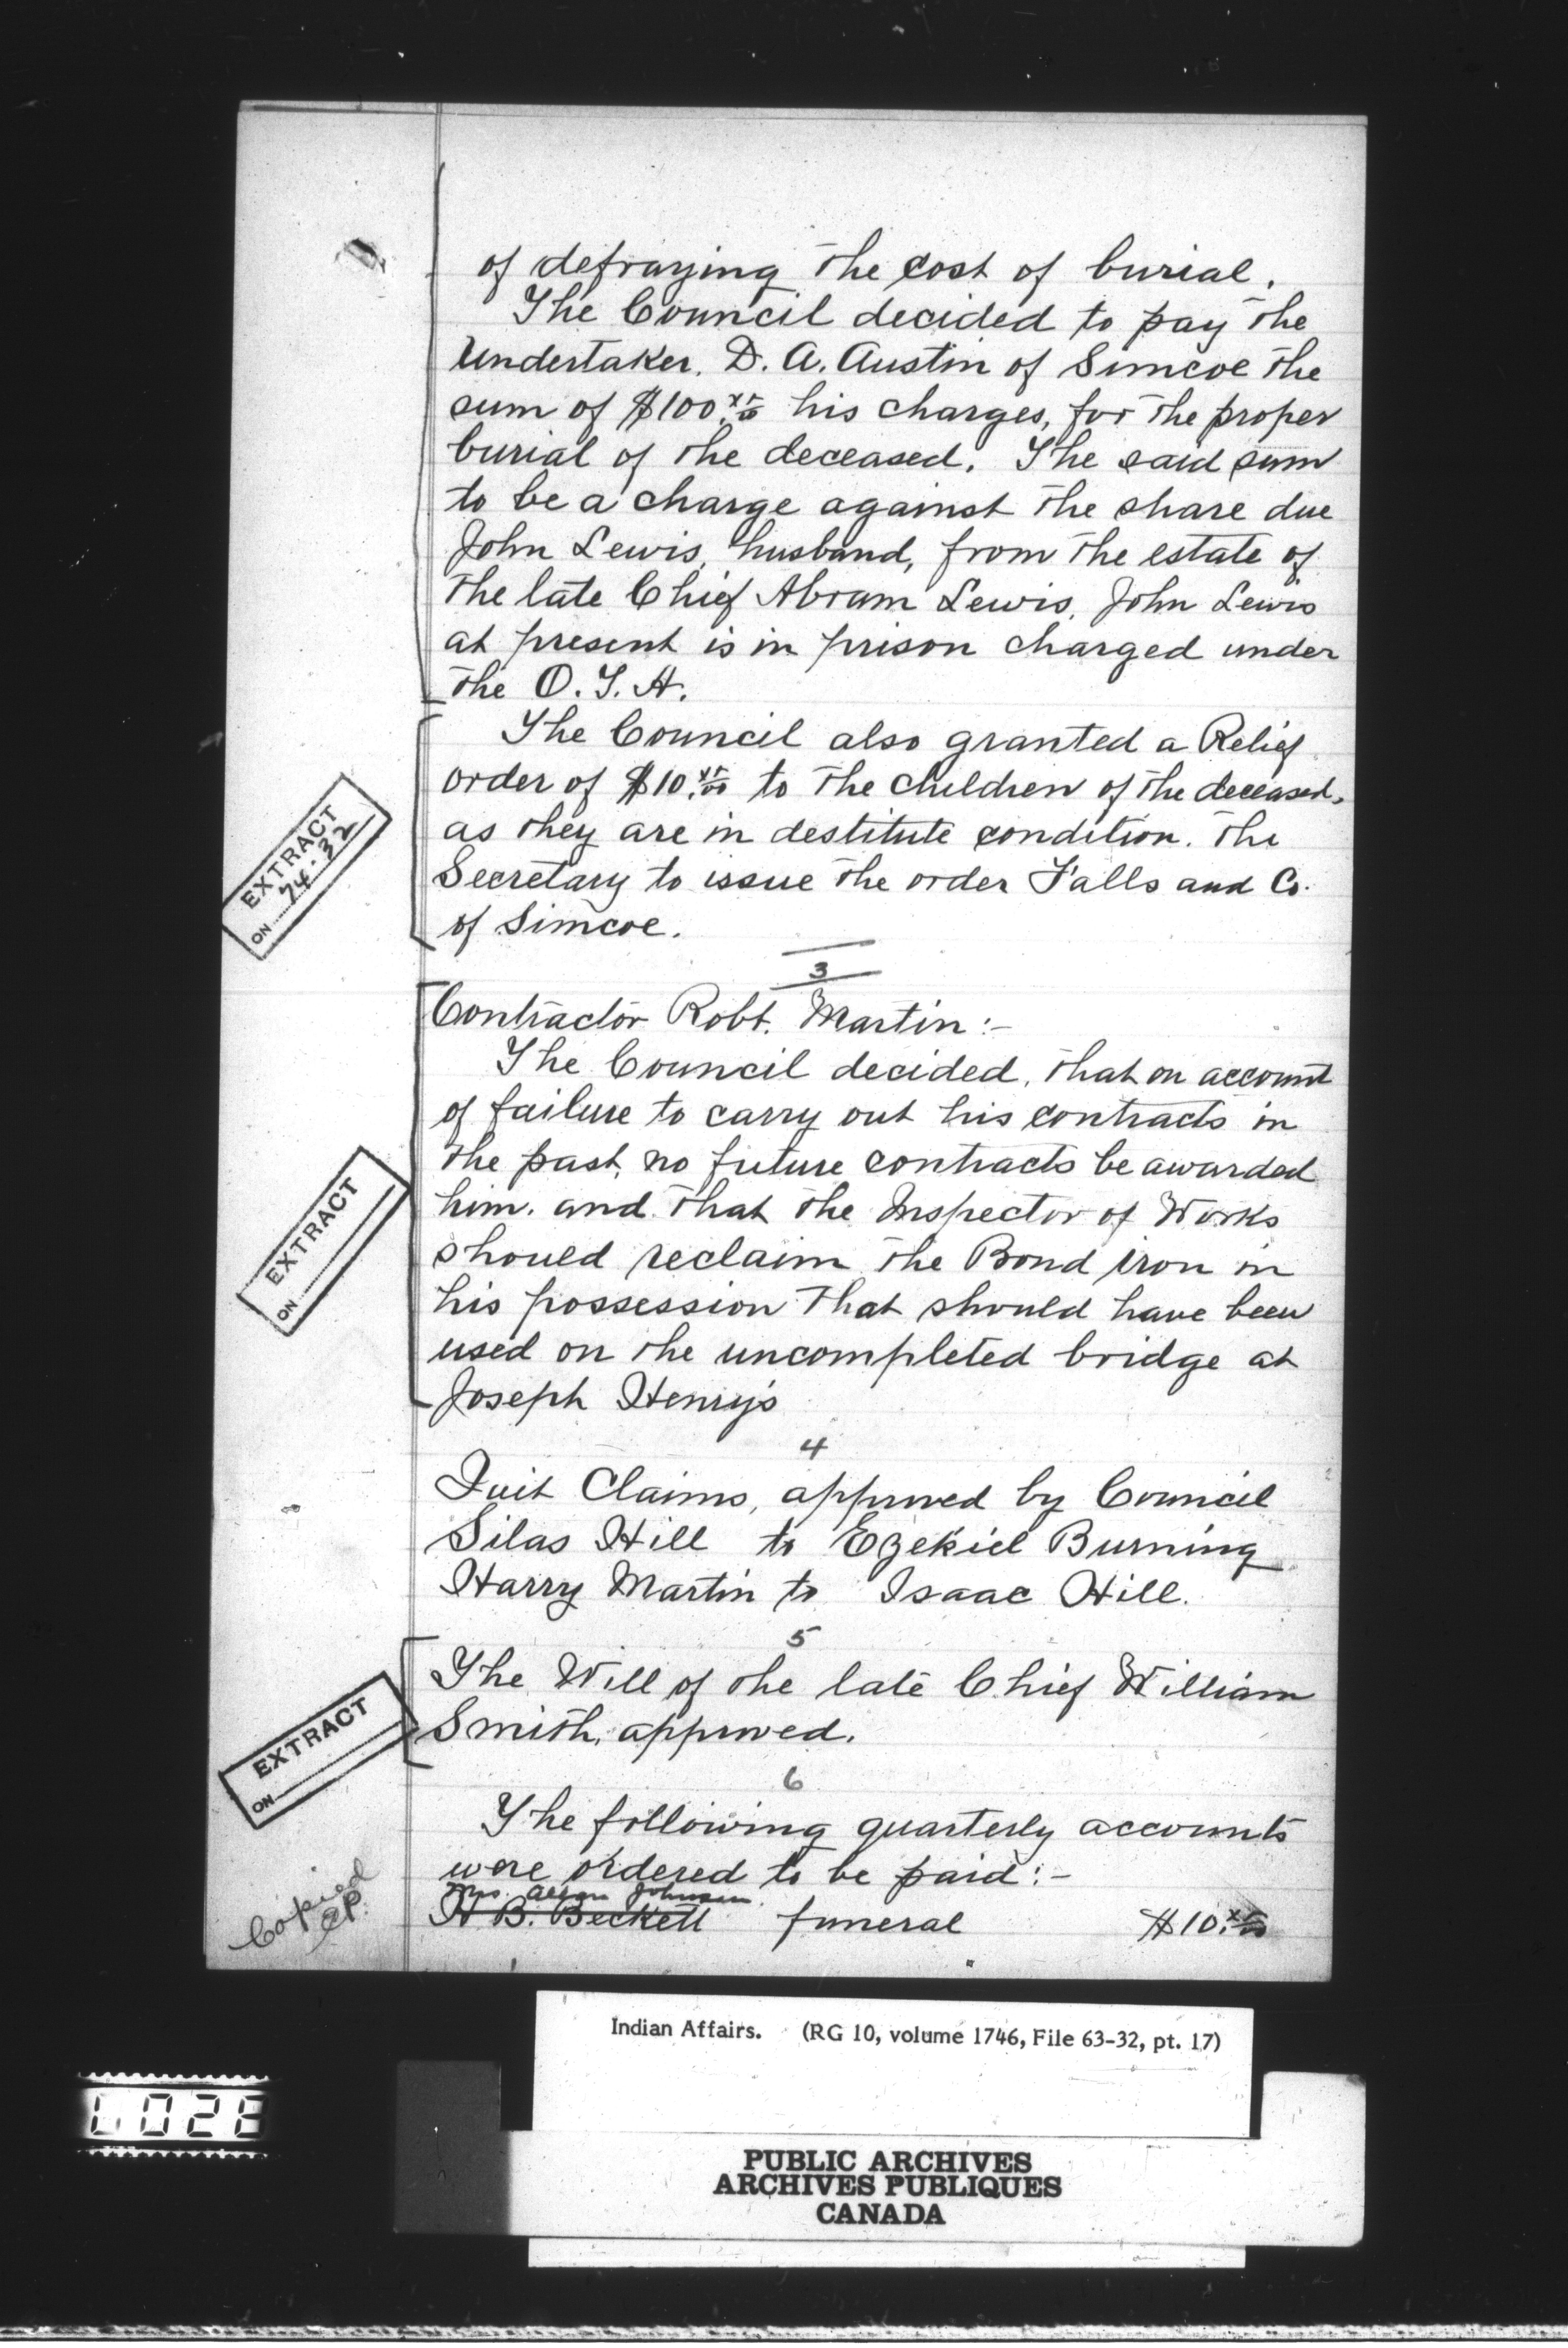 of defraying the cost of burial.
The Council decided to pay the
Undertaker, D. A. Austin of Simcoe the
sum of $100.xx/00 his charges, for the proper
burial of the deceased. The said sum
to be a charge against the share due
John Lewis, husband, from the estate of
the late Chief Abram Lewis. John Lewis
at present is in prison charged under
the O. T. A.
The Council also granted a Relief
order of $10.xx/00 to the children of the deceased,
as they are in destitute condition. The
Secretary to issue the order Falls and Co.
of Simcoe.
EXTRACT
ON 74-32
3
Contractor Robt. Martin:-
The Council decided, that on account
of failure to carry out his contracts in
the past, no future contracts be awarded
him. and that the Inspector of Works
should reclaim the Bond iron in
his possession that should have been
used on the uncompleted bridge at
Joseph Henry's
EXTRACT
ON
4
Quit Claims, approved by Council
Silas Hill to Ezekiel Burning
Harry Martin to Isaac Hill.
5
The Will of the late Chief William
Smith, approved.
EXTRACT
ON
6
The following quarterly accounts
were ordered to be paid:-
Mrs. Johnson
H B. Beckett funeral $10.xx/00
Copied
Indian Affairs. (RG 10, volume 1746, File 63-32, pt. 17)
PUBLIC ARCHIVES
ARCHIVES PUBLIQUES
CANADA